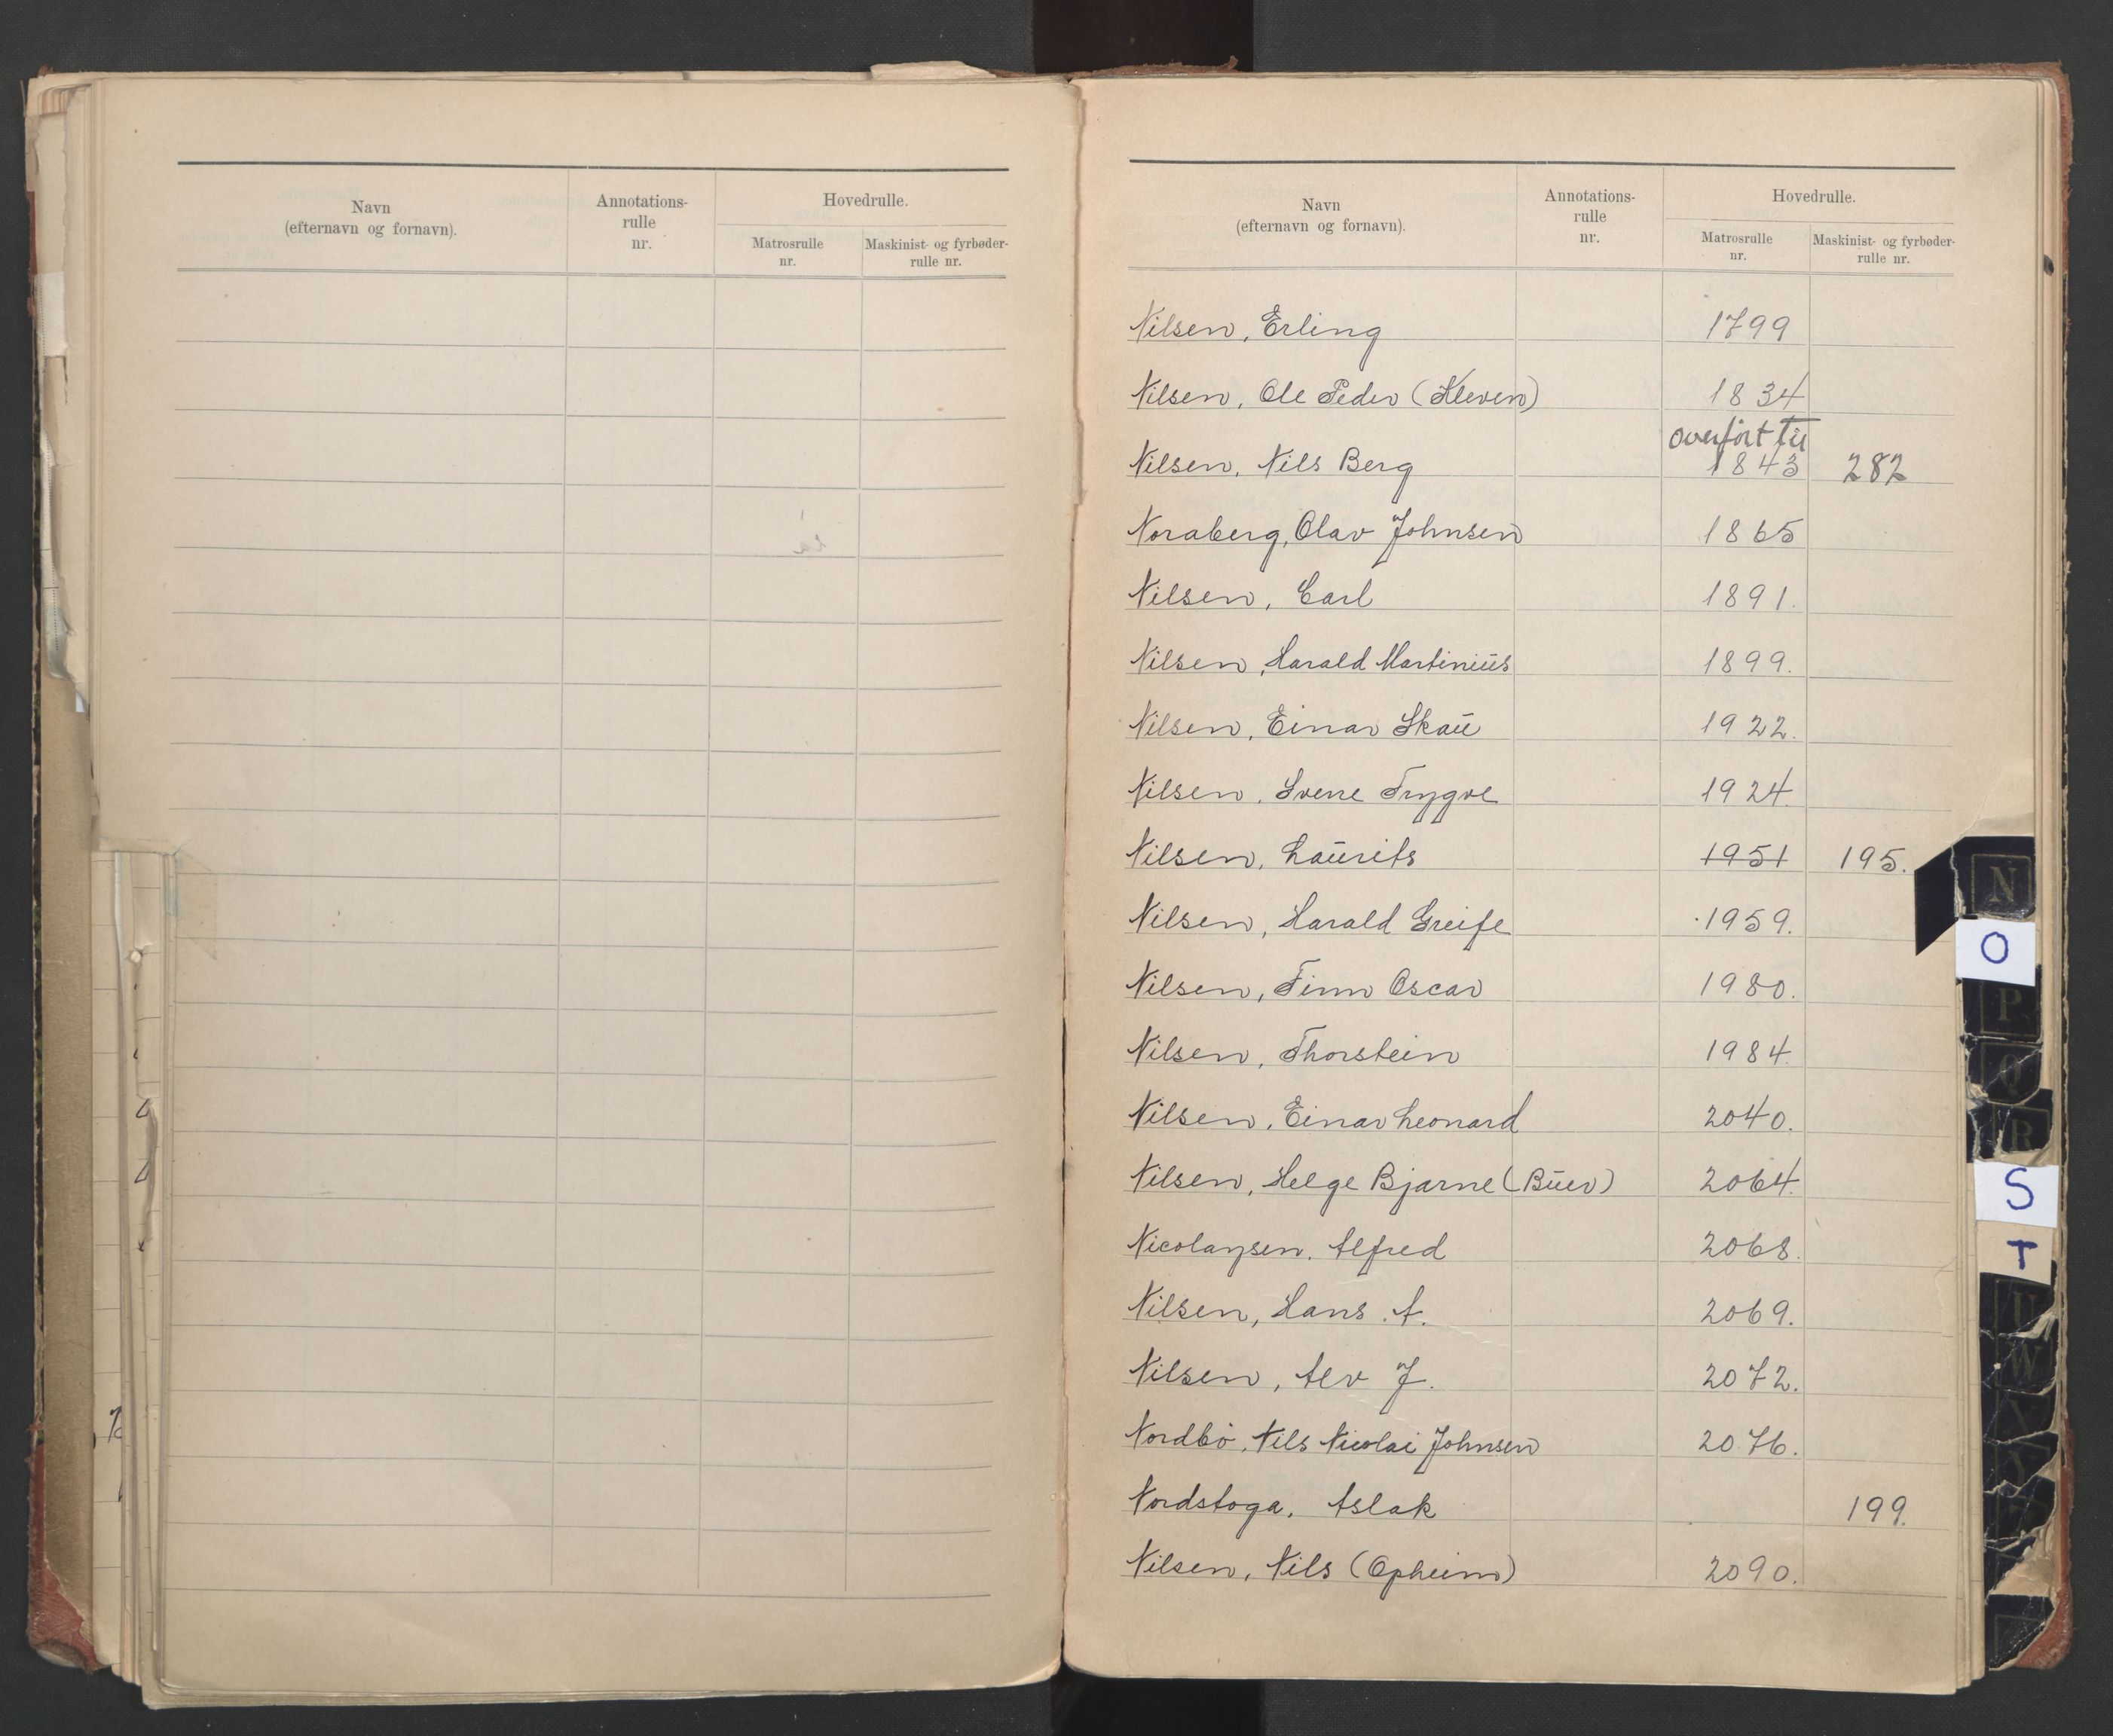 Navn
(efternavn og fornavn).
Annotations-
rulle
nr.
Hovedrulle.
Matrosrulle
nr.
Maskinist- og fyrbøder-
rulle nr.
Navn
(efternavn og fornavn).
Annotations-
rulle
nr.
Hovedrulle.
Matrosrulle
nr.
Maskinist- og fyrbøder-
rulle nr.
Nilsen, Erling 1799
Nilsen, Ole Peder (Kleven) 1834
overført til
Nilsen, Nils Berg 1843 282
Noraberg, Olav Johnsen 1865
Nilsen, Carl 1891.
Nilsen, Harald Martinius 1899.
Nilsen, Einar Skau 1922.
Nilsen, Sverre Trygve 1924.
Nilsen, Laurits 1951 195.
Nilsen, Harald Greife 1959.
Nilsen, Finn Oscar 1980.
Nilsen, Thorstein 1984.
Nilsen, Einar Leonard 2040.
Nilsen, Helge Bjarne (Buer) 2064.
Nicolaysen, Alfred 2068.
Nilsen, Hans A. 2069.
Nilsen, Alv J. 2072.
Nordbø, Nils Nicolai Johnsen 2076.
Nordstoga, Aslak 199.
Nilsen, Nils (Opheim) 2090.
N
O
P
Q
R
S
T
U
W